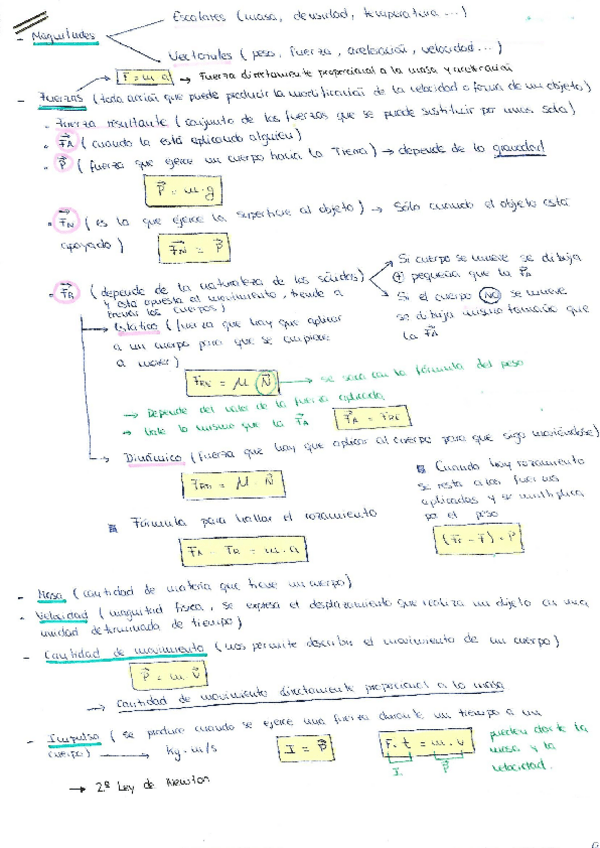 Escalares (masa, densidad, temperatura ...)
- Magnitudes
Vectoriales (peso, fuerza, aceleración, velocidad ...)
F = m·a → Fuerza directamente proporcional a la masa y aceleración
- Fuerzas (toda acción que puede producir la modificación de la velocidad o forma de un objeto)
· Fuerza resultante (conjunto de las fuerzas que se puede sustituir por una sola)
· FA (cuando la está aplicando alguien)
· P (fuerza que ejerce un cuerpo hacia la Tierra) → depende de la gravedad
P = m·g
· FN (es la que ejerce la superficie al objeto) → Sólo cuando el objeto está
apoyado) FN = P
- FR (depende de la naturaleza de los sólidos)
y está opuesta al movimiento, tiende a
frenar los cuerpos)
Si cuerpo se mueve se dibuja
+ pequeña que la FA
Si el cuerpo NO se mueve
se dibuja mismo tamaño que
la FA
→ Estático (fuerza que hay que aplicar
a un cuerpo para que se empiece
a mover)
FRE = μ N → se saca con la fórmula del peso
→ Depende del valor de la fuerza aplicada
→ Vale lo mismo que la FA FA = FRE
→ Dinámico (fuerza que hay que aplicar al cuerpo para que siga moviéndose)
FRD = μ · N
Cuando hay rozamiento
se resta a las fuerzas
aplicadas y se multiplica
por el peso
· P
Fórmula para hallar el rozamiento
FA - FR = m·a
- Masa (cantidad de materia que tiene un cuerpo)
- Velocidad (magnitud física, se expresa el desplazamiento que realiza un objeto en una
unidad determinada de tiempo)
- Cantidad de movimiento (nos permite describir el movimiento de un cuerpo)
P = m·v
→ Cantidad de movimiento directamente proporcional a la masa
- Impulso (se produce cuando se ejerce una fuerza durante un tiempo a un
cuerpo) → kg·m/s I = P F·t = m·v
I P
pueden darte la
masa y la
velocidad.
→ 2ª Ley de Newton